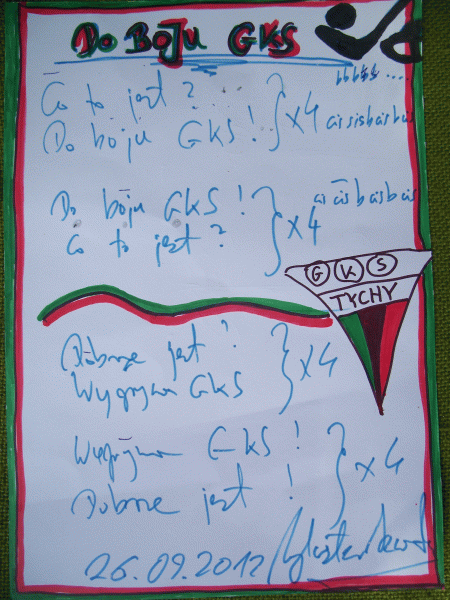 Do Boju GKS
Co to jest ?
Do boju GKS !
} x 4
Do boju GKS !
Co to jest ?
} x 4
GKS
TYCHY
Dobrze jest !
Wygrywa GKS
} x 4
Wygrywa GKS !
Dobrze jest !
} x 4
26.09.2012